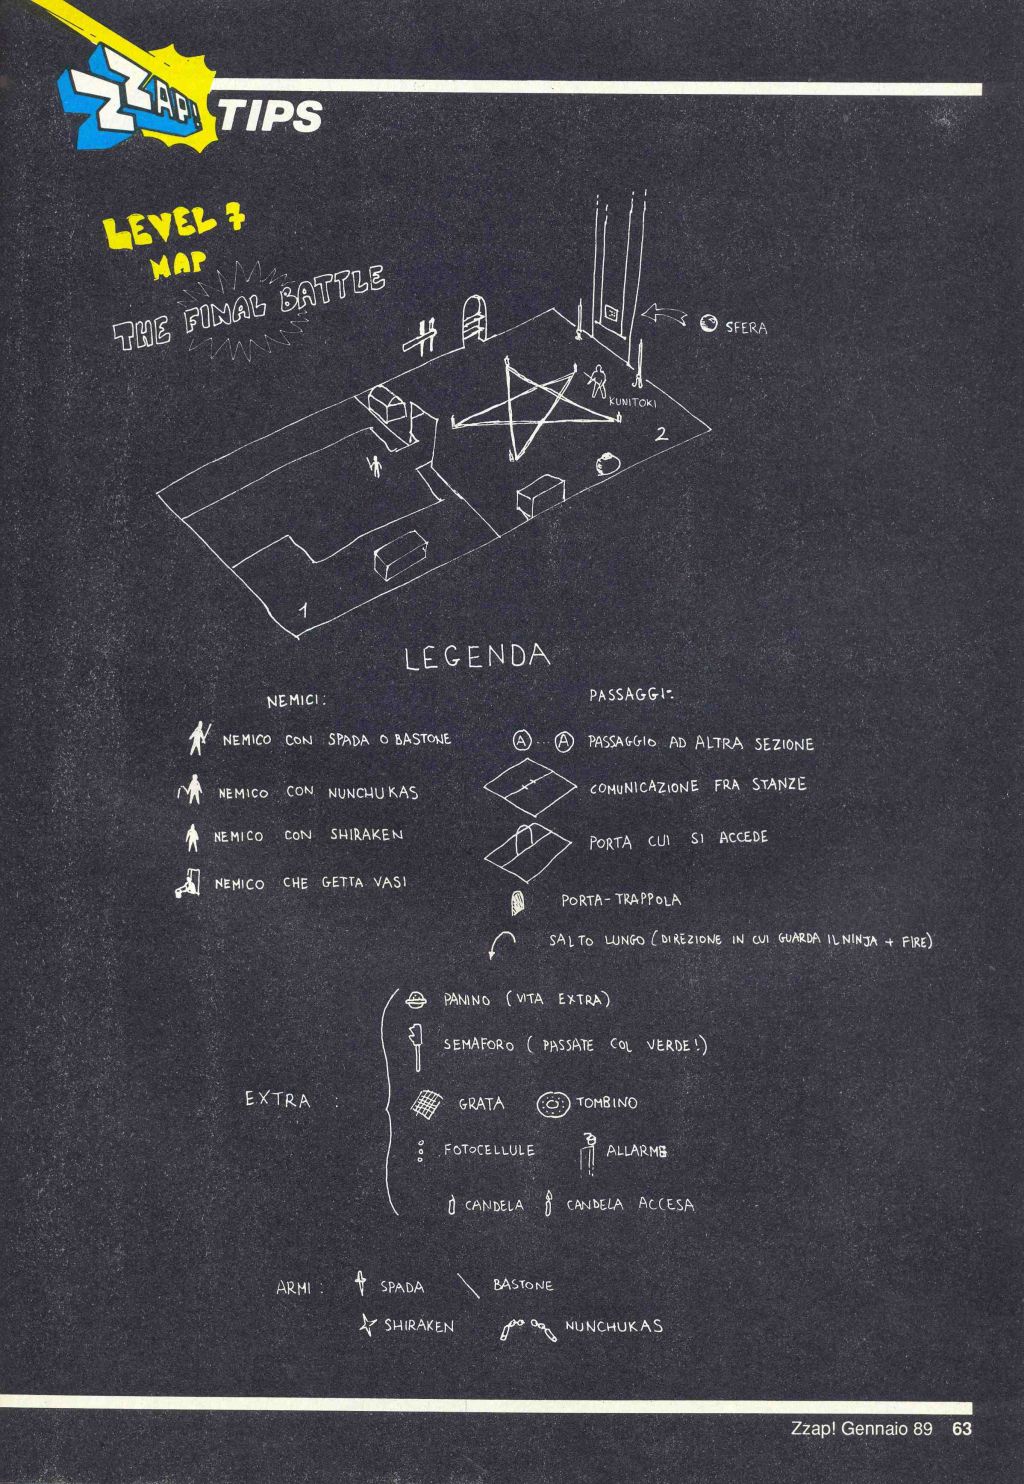 ZZAP! TIPS
LEVEL 7
MAP
THE FINAL BATTLE
SFERA
KUNITOKI
2
1
LEGENDA
NEMICI:
NEMICO CON SPADA O BASTONE
NEMICO CON NUNCHUKAS
NEMICO CON SHIRAKEN
NEMICO CHE GETTA VASI
PASSAGGI:
A...A PASSAGGIO AD ALTRA SEZIONE
COMUNICAZIONE FRA STANZE
PORTA CUI SI ACCEDE
PORTA-TRAPPOLA
SALTO LUNGO (DIREZIONE IN CUI GUARDA IL NINJA + FIRE)
EXTRA :
PANINO (VITA EXTRA)
SEMAFORO (PASSATE COL VERDE!)
GRATA TOMBINO
FOTOCELLULE ALLARME
CANDELA CANDELA ACCESA
ARMI: SPADA BASTONE
SHIRAKEN NUNCHUKAS
Zzap! Gennaio 89 63